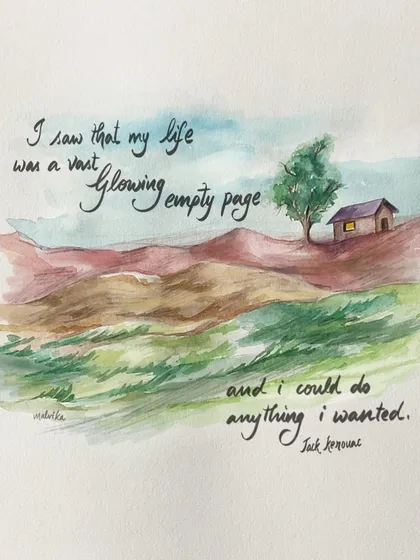 I saw that my life
was a vast
Glowing
empty page
and i could do
anything i wanted.
Jack Kerouac
malvika